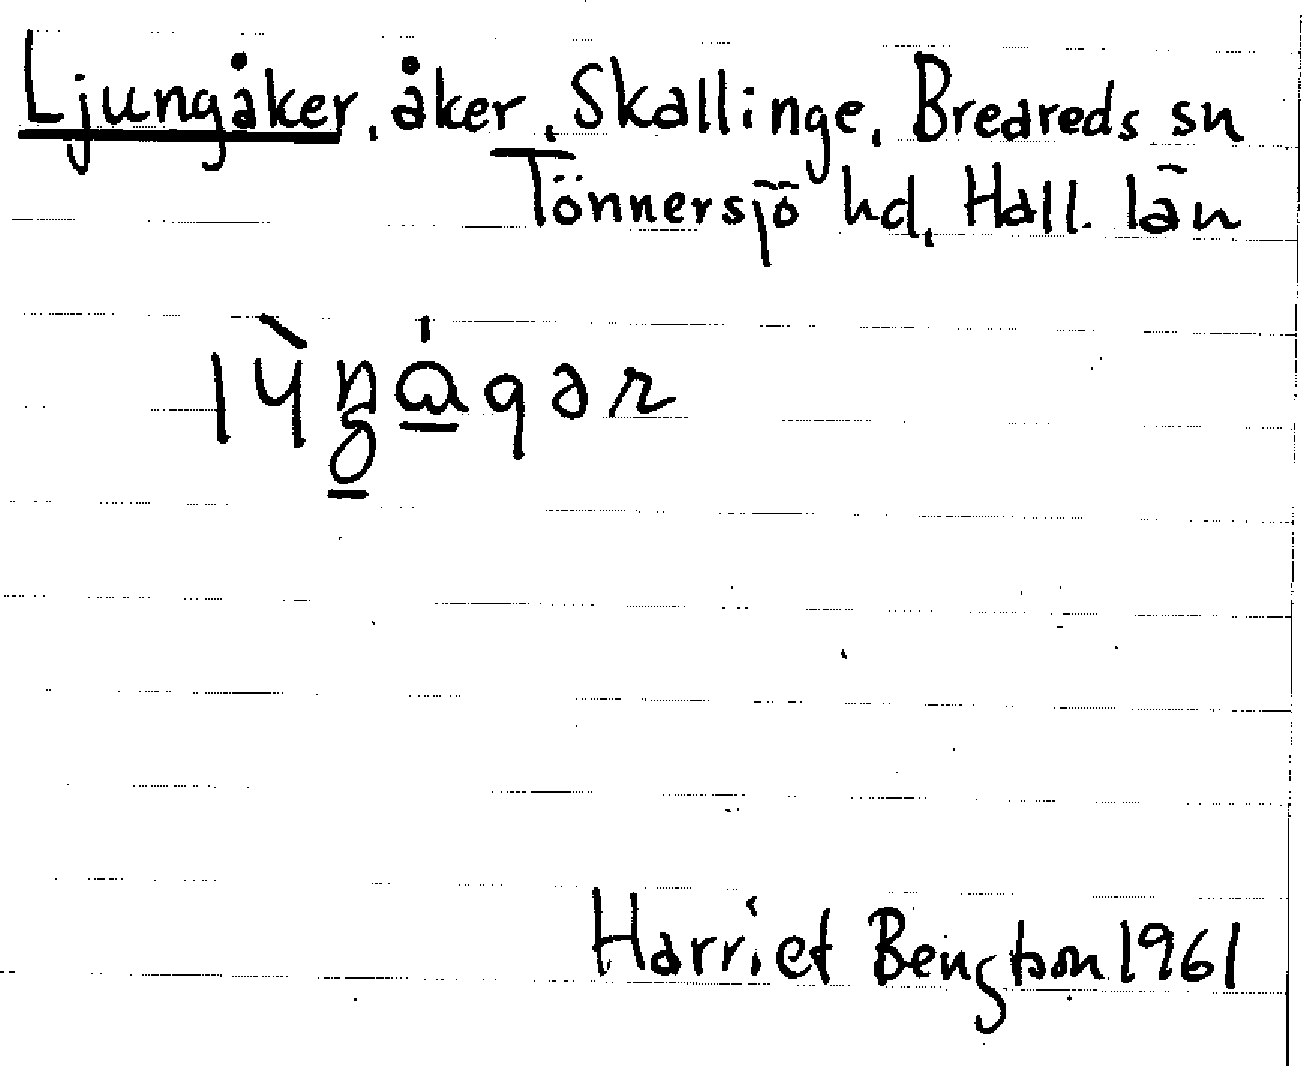 Ljungåker, åker, Skallinge, Breareds sn
Tönnersjö hd, Hall. län
Harriet Bengtson 1961